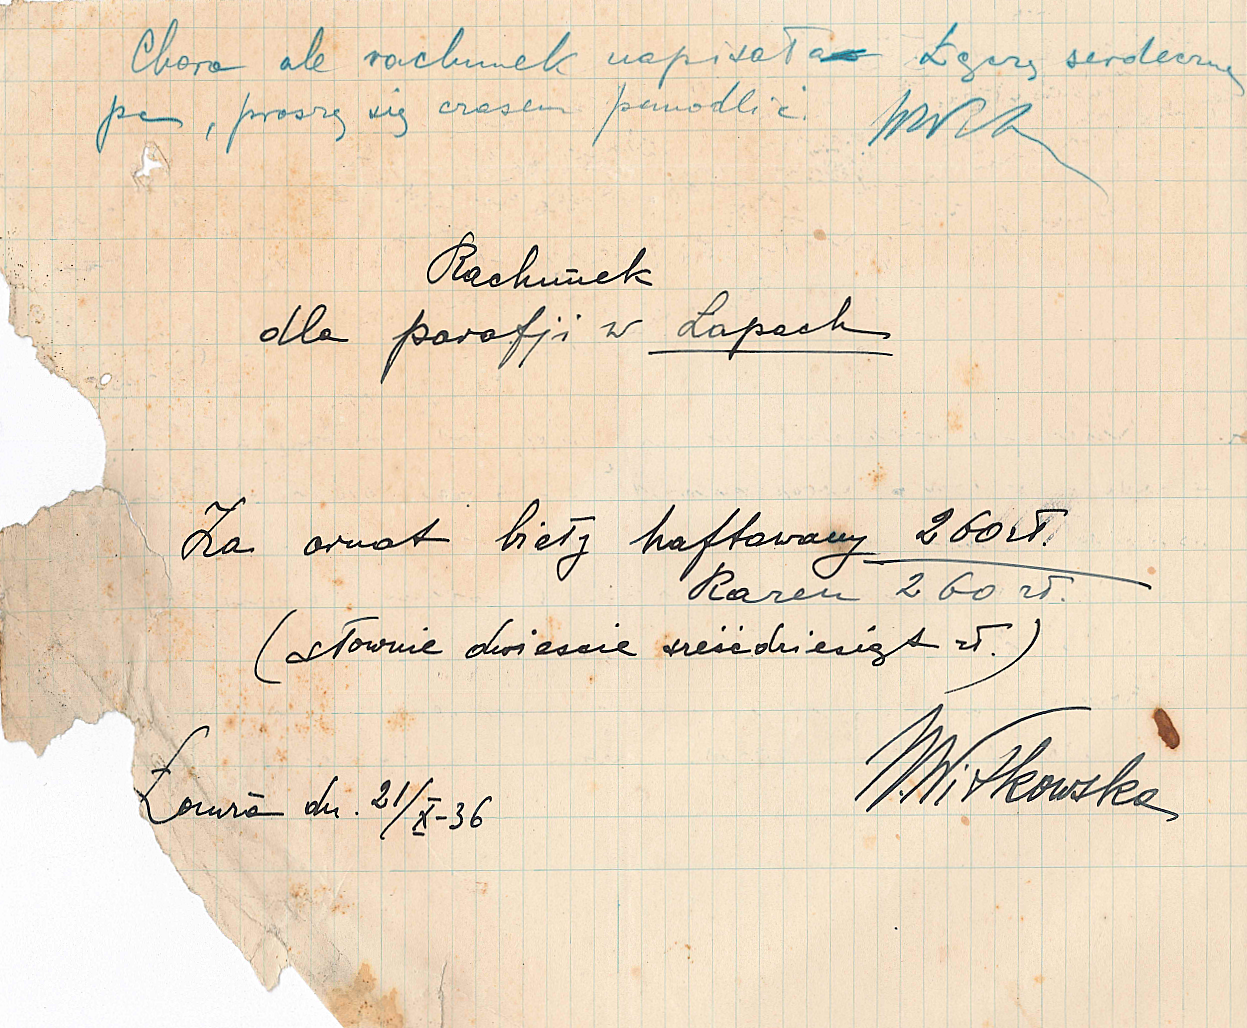 Chora ale rachunek napisała Łączę serdeczne
, proszę się czasem pomodlić.
Rachunek
dla parafji w Łapach
Za ornat biały haftowany 260 zł.
Razem 260 zł.
(słownie dwieście sześćdziesiąt zł.)
W. Witkowska
Łomża dn. 21/X-36